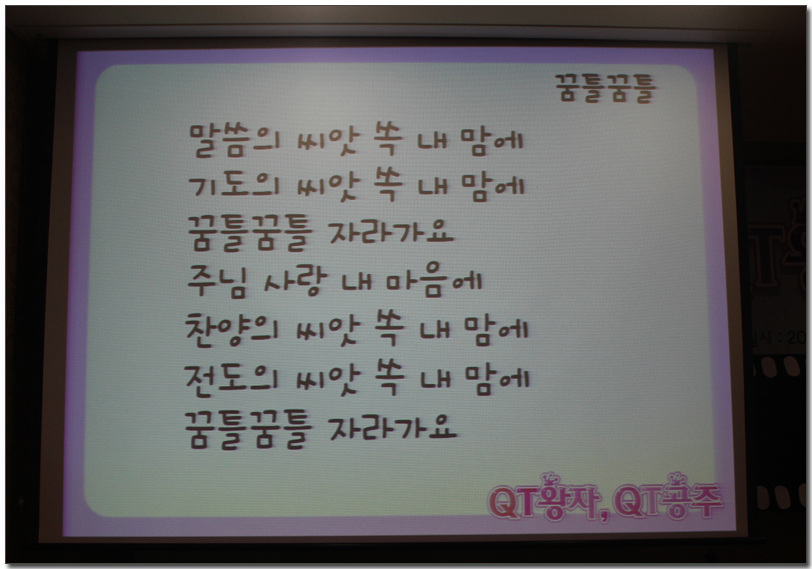 꿈틀꿈틀
말씀의 씨앗 쏙 내 맘에
기도의 씨앗 쏙 내 맘에
꿈틀꿈틀 자라가요
주님 사랑 내 마음에
찬양의 씨앗 쏙 내 맘에
전도의 씨앗 쏙 내 맘에
꿈틀꿈틀 자라가요
QT왕자, QT공주